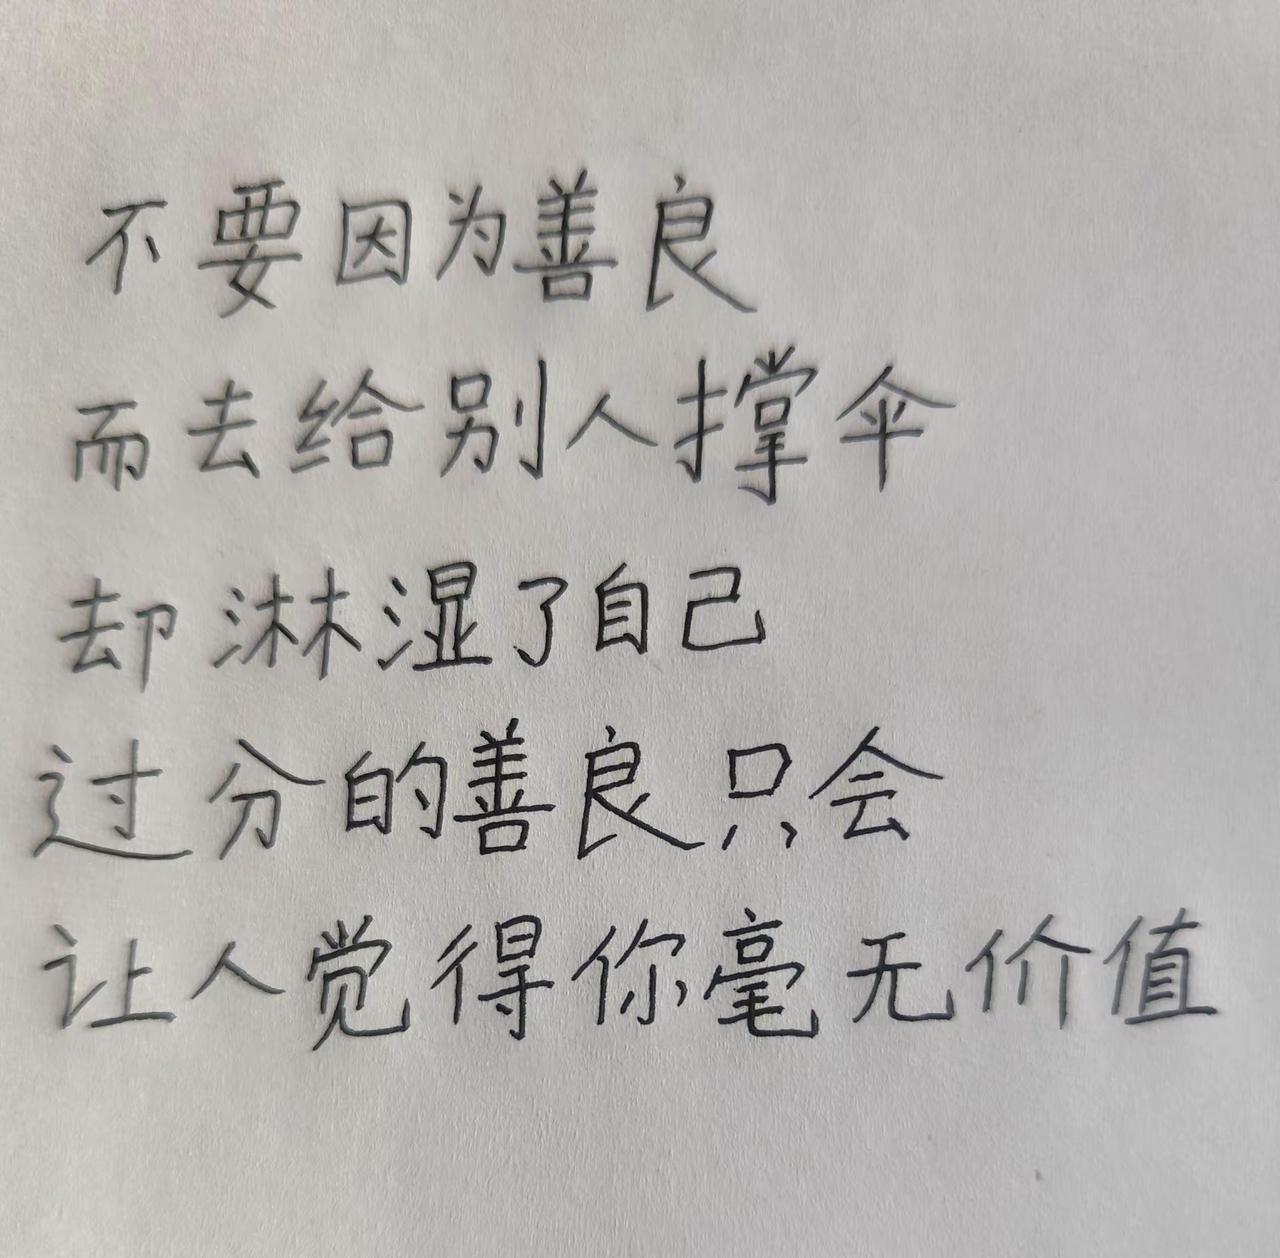 不要因为善良
而去给别人撑伞
却淋湿了自己
过分的善良只会
让人觉得你毫无价值